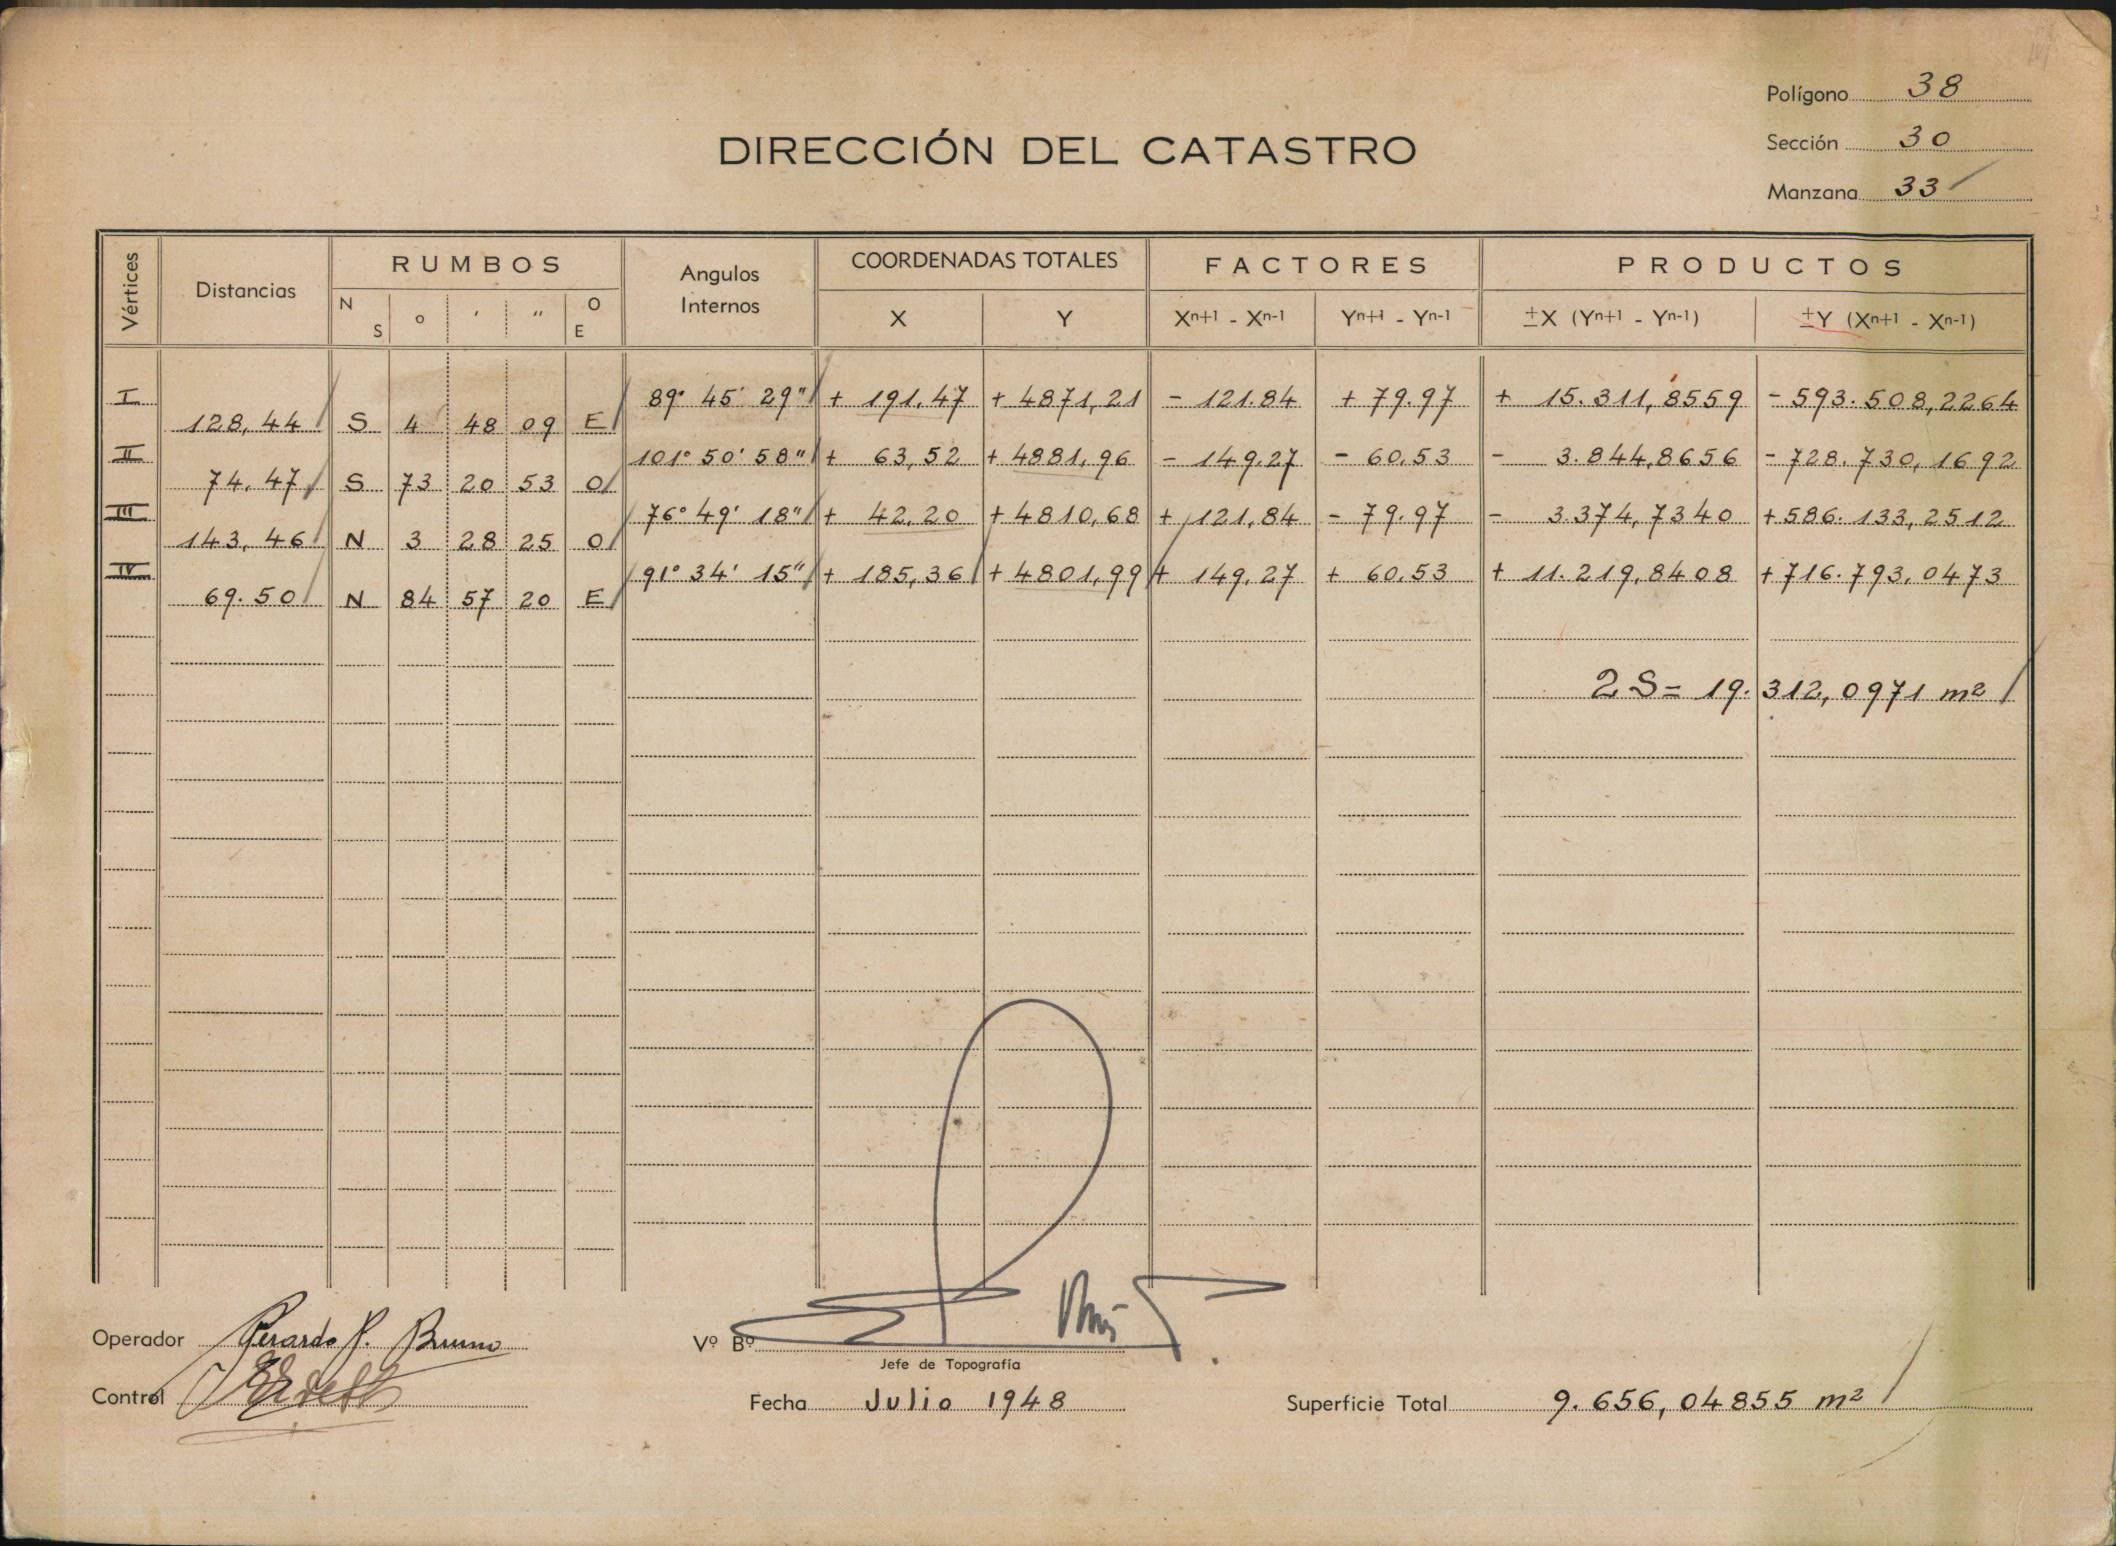 Polígono 38
DIRECCIÓN DEL CATASTRO
Sección 30
Manzana 33
Vértices Distancias RUMBOS Angulos Internos COORDENADAS TOTALES FACTORES PRODUCTOS
N S o ' " O E X Y Xn+1 - Xn-1 Yn+1 - Yn-1 ±X (Yn+1 - Yn-1) ±Y (Xn+1 - Xn-1)
I 89° 45' 29" + 191,47 + 4871,21 - 121.84 + 79.97 + 15.311,8559 - 593.508,2264
128,44 S 4 48 09 E
II 101° 50' 58" + 63,52 + 4881,96 - 149.27 - 60.53 - 3.844,8656 - 728.730,1692
74,47 S 73 20 53 O
III 76° 49' 18" + 42,20 + 4810,68 + 121,84 - 79.97 - 3.374,7340 + 586.133,2512
143,46 N 3 28 25 O
IV 91° 34' 15" + 185,36 + 4801,99 + 149,27 + 60.53 + 11.219,8408 + 716.793,0473
69.50 N 84 57 20 E
2S = 19.312,0971 m²
Operador Gerardo P. Bruno
Vº Bº
Jefe de Topografía
Control
Fecha Julio 1948
Superficie Total 9.656,04855 m²